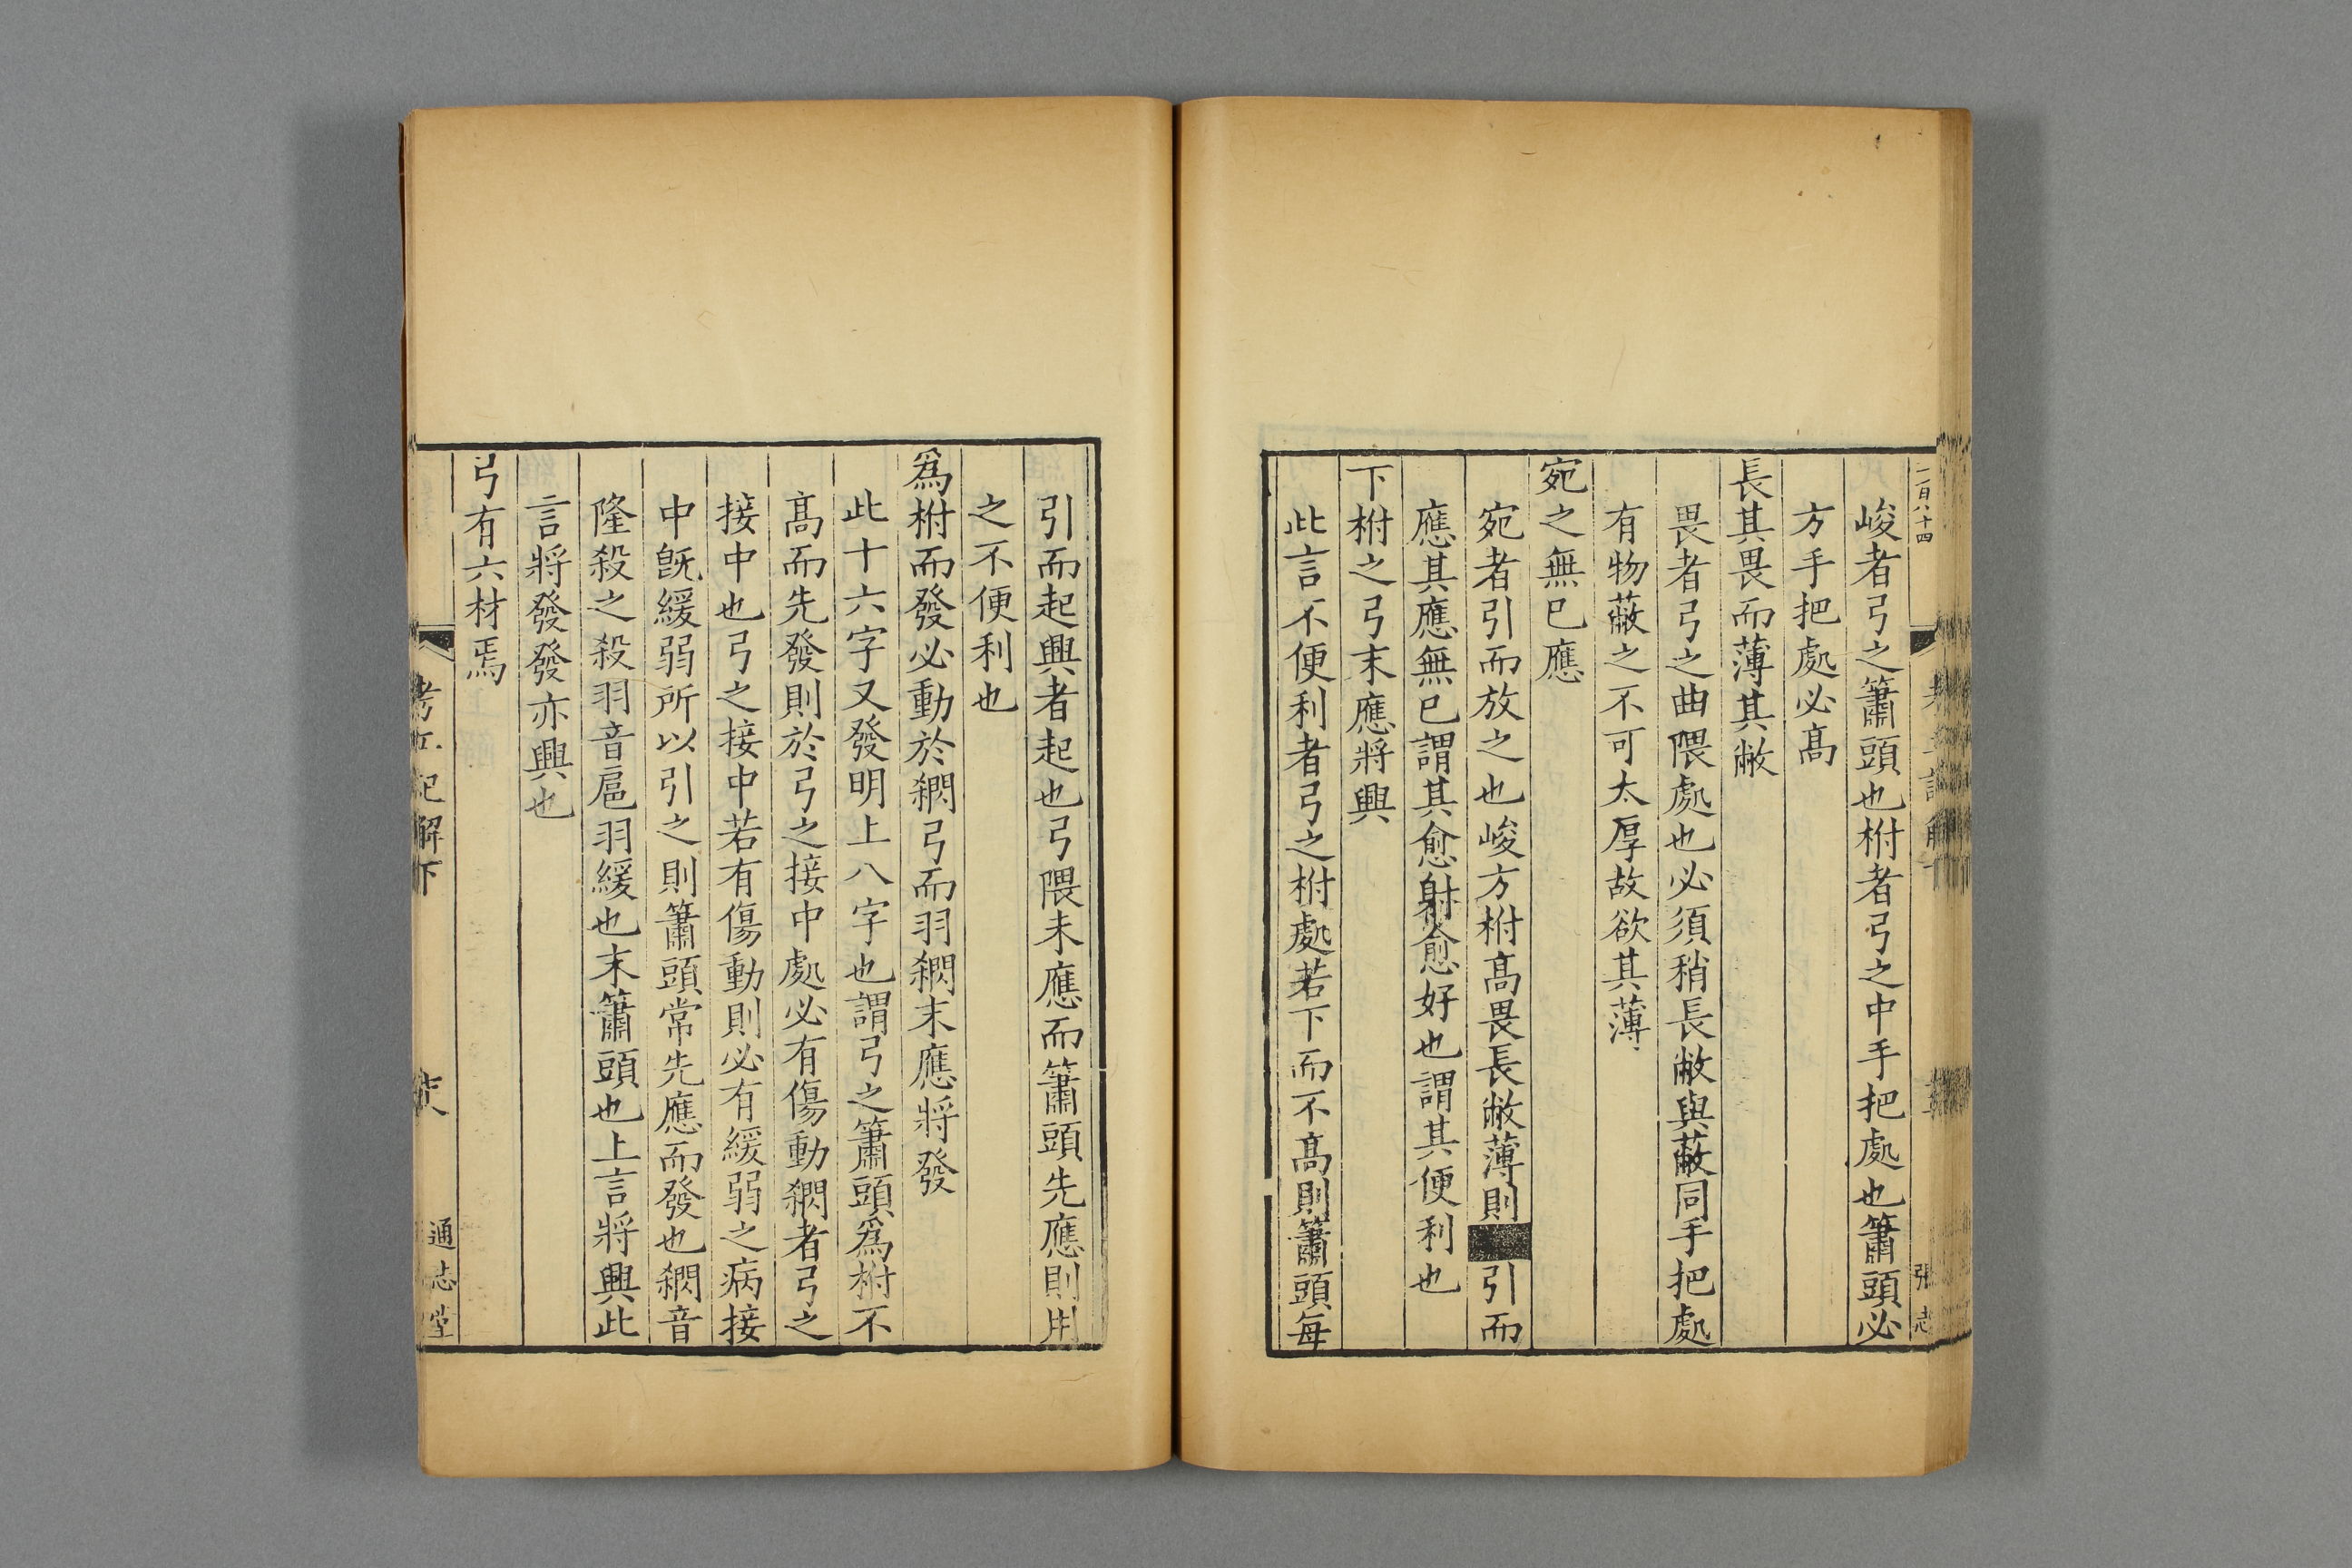 二百八十四
張志
峻者弓之簫頭也柎者弓之中手把處也簫頭必
方手把處必髙
長其畏而薄其敝
畏者弓之曲隈處也必須稍長敝與蔽同手把處
有物蔽之不可太厚故欲其薄
宛之無已應
宛者引而放之也峻方柎髙畏長敝薄則■引而
應其應無已謂其愈射愈好也謂其便利也
下柎之弓末應將興
此言不便利者弓之柎處若下而不髙則簫頭每
引而起興者起也弓隈未應而簫頭先應則用
之不便利也
爲柎而發必動於閷弓而羽閷末應將發
此十六字又發明上八字也謂弓之簫頭爲柎不
髙而先發則於弓之接中處必有傷動閷者弓之
接中也弓之接中若有傷動則必有緩弱之病接
中旣緩弱所以引之則簫頭常先應而發也閷音
隆殺之殺羽音扈羽緩也末簫頭也上言將興此
言將發發亦興也
弓有六材焉
考工記解下
通志堂